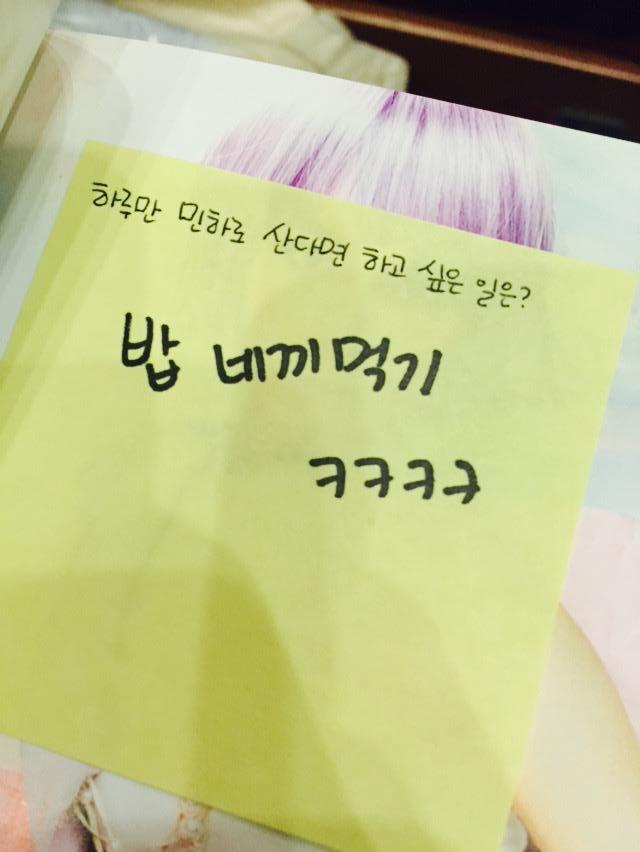 하루만 민하로 산다면 하고 싶은 일은?
밥 네끼먹기
ㅋㅋㅋㅋ